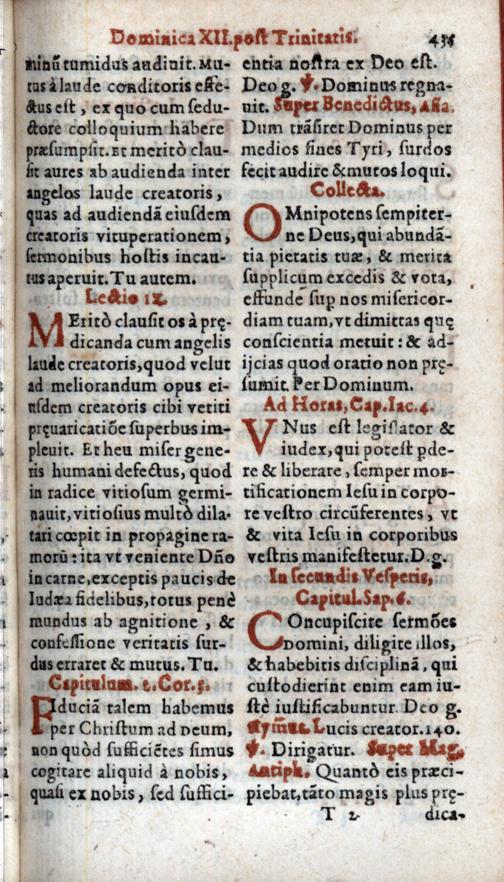 Dominica XII. post Trinitatis. 435
minũ tumidus audiuit. Mu-
tus à laude conditoris effe-
ctus est, ex quo cum sedu-
ctore colloquium habere
præsumpsit. Et meritò clau-
sit aures ab audienda inter
angelos laude creatoris,
quas ad audiendã eiusdem
creatoris vituperationem,
sermonibus hostis incau-
tus aperuit. Tu autem.
Lectio ix.
MEritò clausit os à prę-
dicanda cum angelis
laude creatoris, quod velut
ad meliorandum opus ei-
usdem creatoris cibi vetiti
pręuaricatiõe superbus im-
pleuit. Et heu miser gene-
ris humani defectus, quod
in radice vitiosum germi-
nauit, vitiosius multò dila-
tari cœpit in propagine ra-
morũ: ita vt veniente Dño
in carne, exceptis paucis de
Iudæa fidelibus, totus penè
mundus ab agnitione, &
confessione veritatis sur-
dus erraret & mutus. Tu.
Capitulum. 2. Cor. 3.
FIduciã talem habemus
per Christum ad Deum,
non quòd sufficiẽtes simus
cogitare aliquid à nobis,
quasi ex nobis, sed suffici-
entia nostra ex Deo est.
Deo g. ℣. Dominus regna-
uit. Super Benedictus, Aña.
Dum trãsiret Dominus per
medios fines Tyri, surdos
fecit audire & mutos loqui.
Collecta.
OMnipotens sempiter-
ne Deus, qui abundã-
tia pietatis tuæ, & merita
supplicum excedis & vota,
effunde sup nos misericor-
diam tuam, vt dimittas quę
conscientia metuit: & ad-
ijcias quod oratio non prę-
sumit. Per Dominum.
Ad Horas, Cap. Iac. 4.
VNus est legislator &
iudex, qui potest pde-
re & liberare, semper mor-
tificationem Iesu in corpo-
re vestro circũferentes, vt
& vita Iesu in corporibus
vestris manifestetur. D. g.
In secundis Vesperis,
Capitul. Sap. 6.
COncupiscite sermões
Domini, diligite illos,
& habebitis disciplinã, qui
custodierint enim eam iu-
stè iustificabuntur. Deo g.
Hymnus. Lucis creator. 140.
℣. Dirigatur. Super Mag.
Antiph. Quantò eis præci-
piebat, tãto magis plus prę-
T 2 dica-